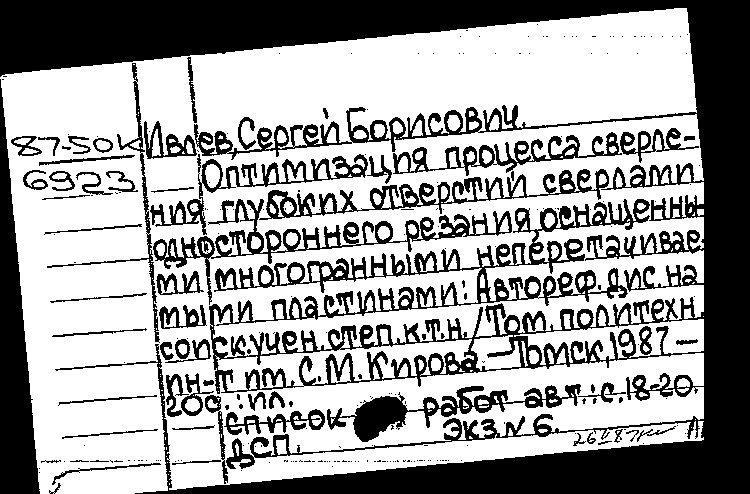 87-50К Ивлев, Сергей Борисович.
6923 Оптимизация процесса сверле-
ния глубоких отверстий сверлами
одностороннего резания, оснащенны-
ми многогранными неперетачивае-
мыми пластинами: Автореф. дис. на
соиск. учен. степ. к.т.н. / Том. политехн.
ин-т им. С.М. Кирова. — Томск, 1987 —
20с.: ил.
список работ авт.: с. 18-20.
ДСП. ЭКЗ. N 6.